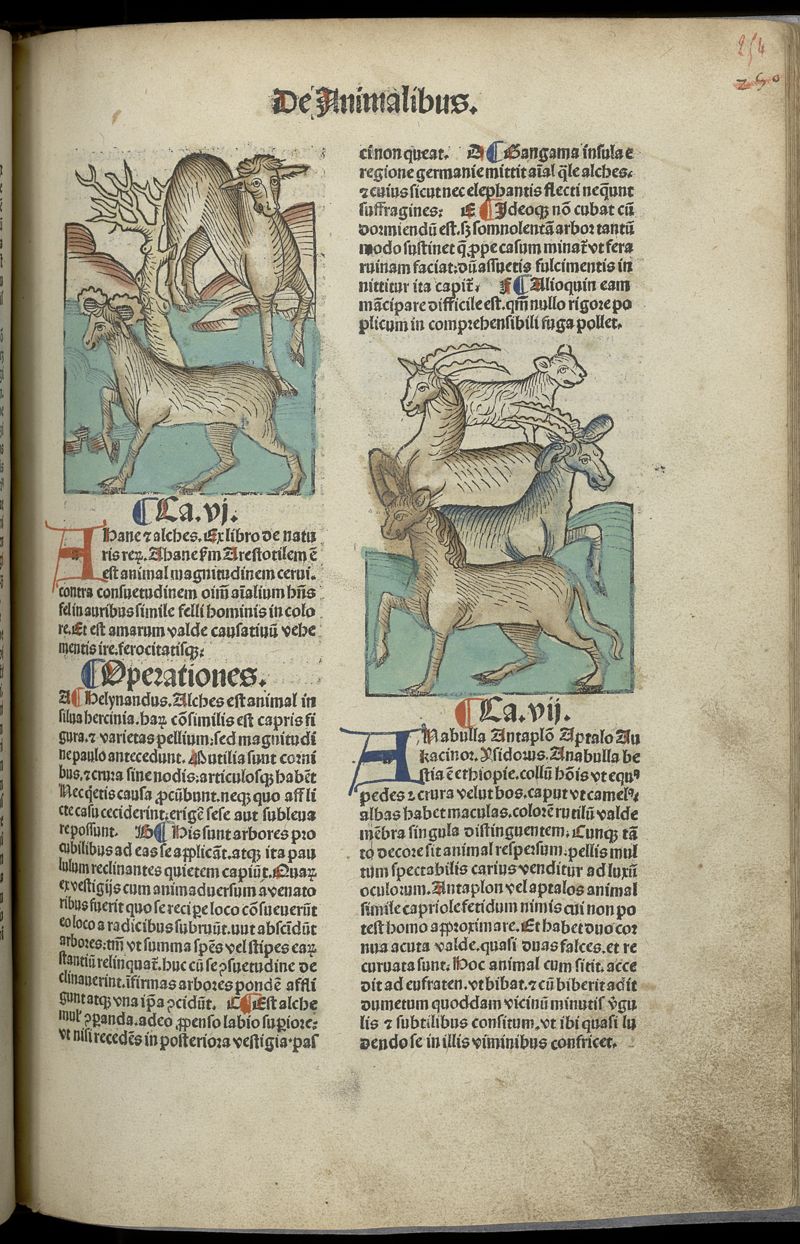 254
250
De Animalibus.
Ca.vj.
AHane ⁊ alches. Ex libro de natu
ris reꝝ. Ahane ẜm Arestotilem ē
est animal magnitudinem cerui.
contra consuetudinem oīm aīalium hñs
fel in auribus simile felli hominis in colo
re. Et est amarum valde causatiuū vehe
mentis ire. ferocitatisqꝫ.
Operationes.
A Helynandus. Alches est animal in
silua hercinia. haꝝ cōsimilis est capris fi
gura. ⁊ varietas pellium. sed magnitudi
ne paulo antecedunt. Mutilia sunt corni
bus. ⁊ crura sine nodis: articulosqꝫ habēt
Nec q̄etis causa ꝓcūbunt. neqꝫ quo affli
cte casu ceciderint: erigē sese aut subleua
re possunt. B His sunt arbores pro
cubilibus ad eas se applicāt. atqꝫ ita pau
lulum reclinantes quietem capiūt. Quaꝝ
ex vestigijs cum animaduersum a venato
ribus fuerit quo se recipe loco cōsueuerūt
eo loco a radicibus subruūt. uut abscidūt
arbores: tm̄ vt summa spēs vel stipes eaꝝ
stantiū relinquat᷒. huc cū se ꝯsuetudine de
clinauerint. īfirmas arbores pondē affli
gunt atqꝫ vna ip̄a ꝯcidūt. C Est alche
mul᷒ ꝯꝑanda. adeo ꝓpenso labio supiore:
vt nisi recedēs in posteriora vestigia pas
ci non queat. D Gangama insula e
regione germanie mittit aīal q̄le alches.
⁊ cuius sicut nec elephantis flecti neq̄unt
suffragines: E Ideoqꝫ nō cubat cū
dormiendū est. sꝫ somnolentā arbor tantū
modo sustinet q̄ ꝓpe casum minat᷒ vt fera
ruinam faciat: dū assuetis fulcimentis in
nititur ita capit᷒. F Alioquin eam
mācipare difficile est. qm̄ nullo rigore po
plicum in comprehensibili fuga pollet.
Ca.vij.
ANabulla Antaplō Aptalo Au
kacinor. Ysidorus. Anabulla be
stia ē ethiopie. collū hōis vt equꝰ
pedes ⁊ crura velut bos. caput vt camelꝰ.
albas habet maculas. colorē rutilū valde
mēbra singula distinguentem. Cunqꝫ tā
to decore sit animal respersum: pellis mul
tum spectabilis carius venditur ad luxū
oculorum. Antaplon vel aptalos animal
simile capriole fetidum nimis cui non po
test homo approximare. Et habet duo cor
nua acuta valde. quasi duas falces. et re
curuata sunt. Hoc animal cum sitit. acce
dit ad eufraten. vt bibat. ⁊ cū biberit adit
dumetum quoddam vicinū minutis v̄gu
lis ⁊ subtilibus consitum. vt ibi quasi lu
dendo se in illis viminibus confricet.